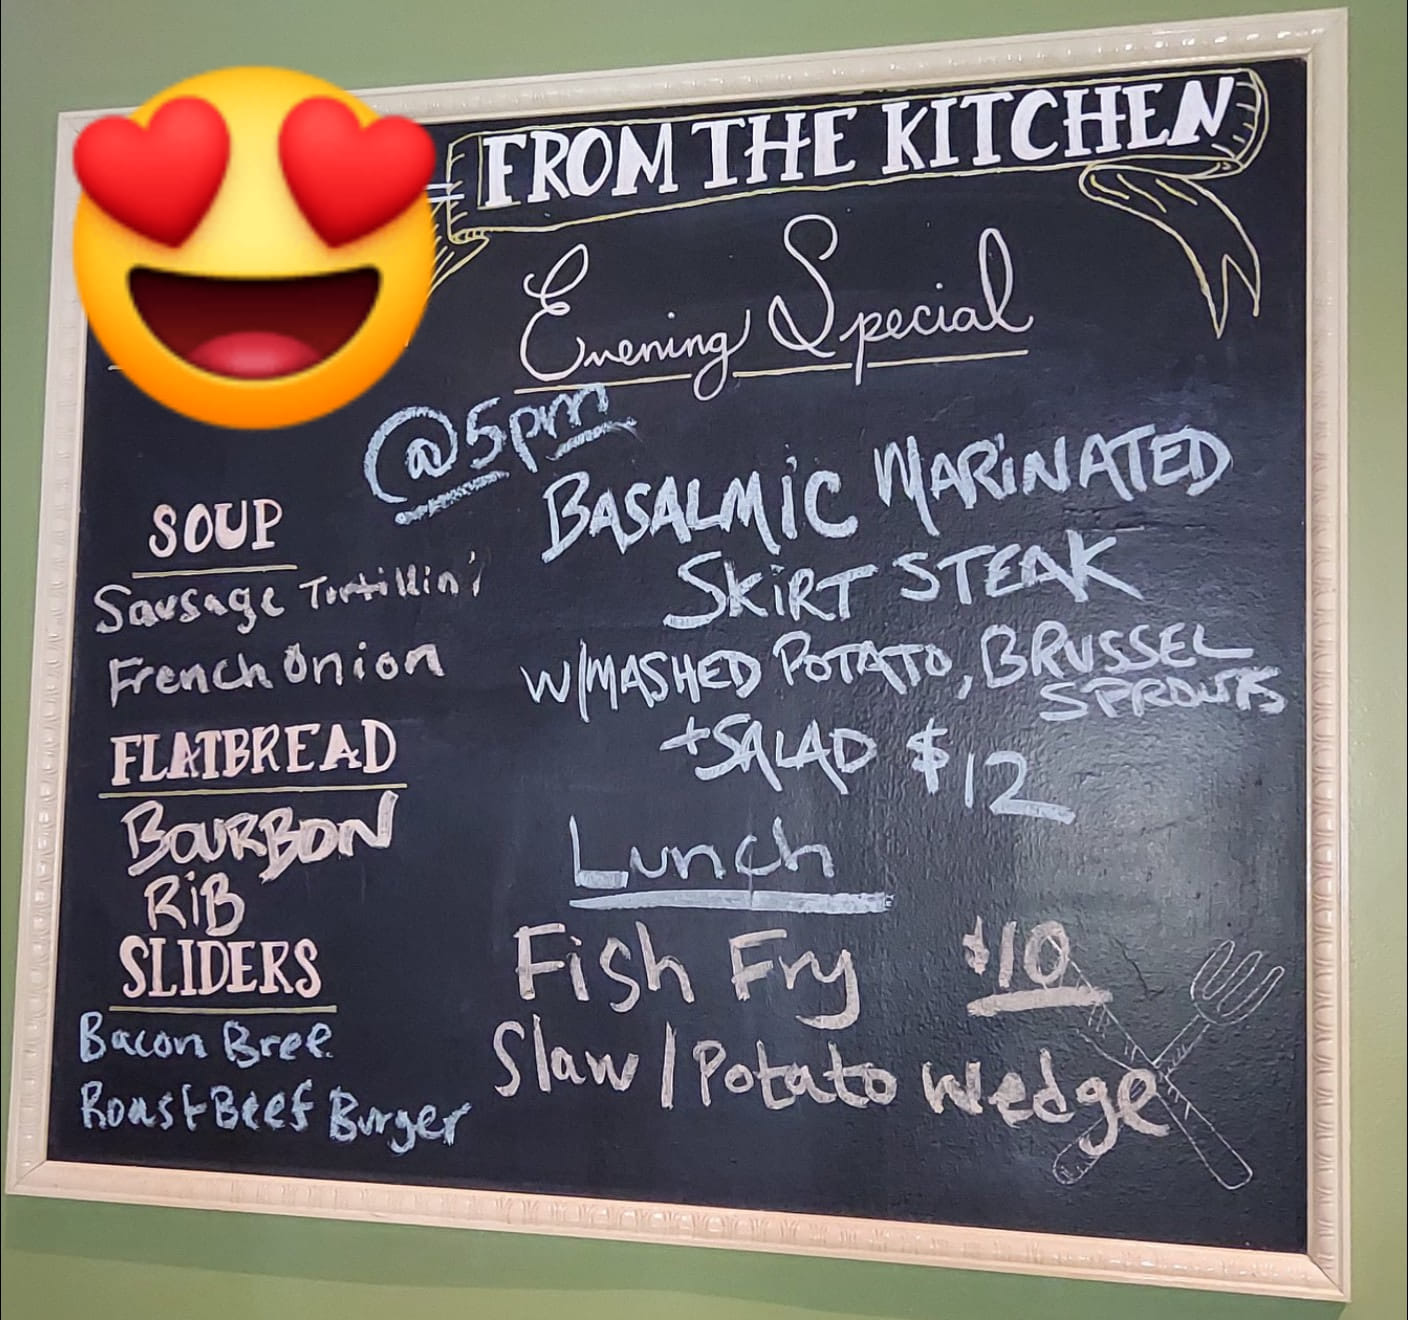 FROM THE KITCHEN
Evening Special
@5pm
BASALMIC MARINATED
SKIRT STEAK
W/MASHED POTATO, BRUSSEL
SPROUTS
+SALAD $12
Lunch
Fish Fry $10
Slaw / Potato Wedge
SOUP
Sausage Tortillini
French Onion
FLATBREAD
BOURBON
RIB
SLIDERS
Bacon Bree
Roast Beef Burger